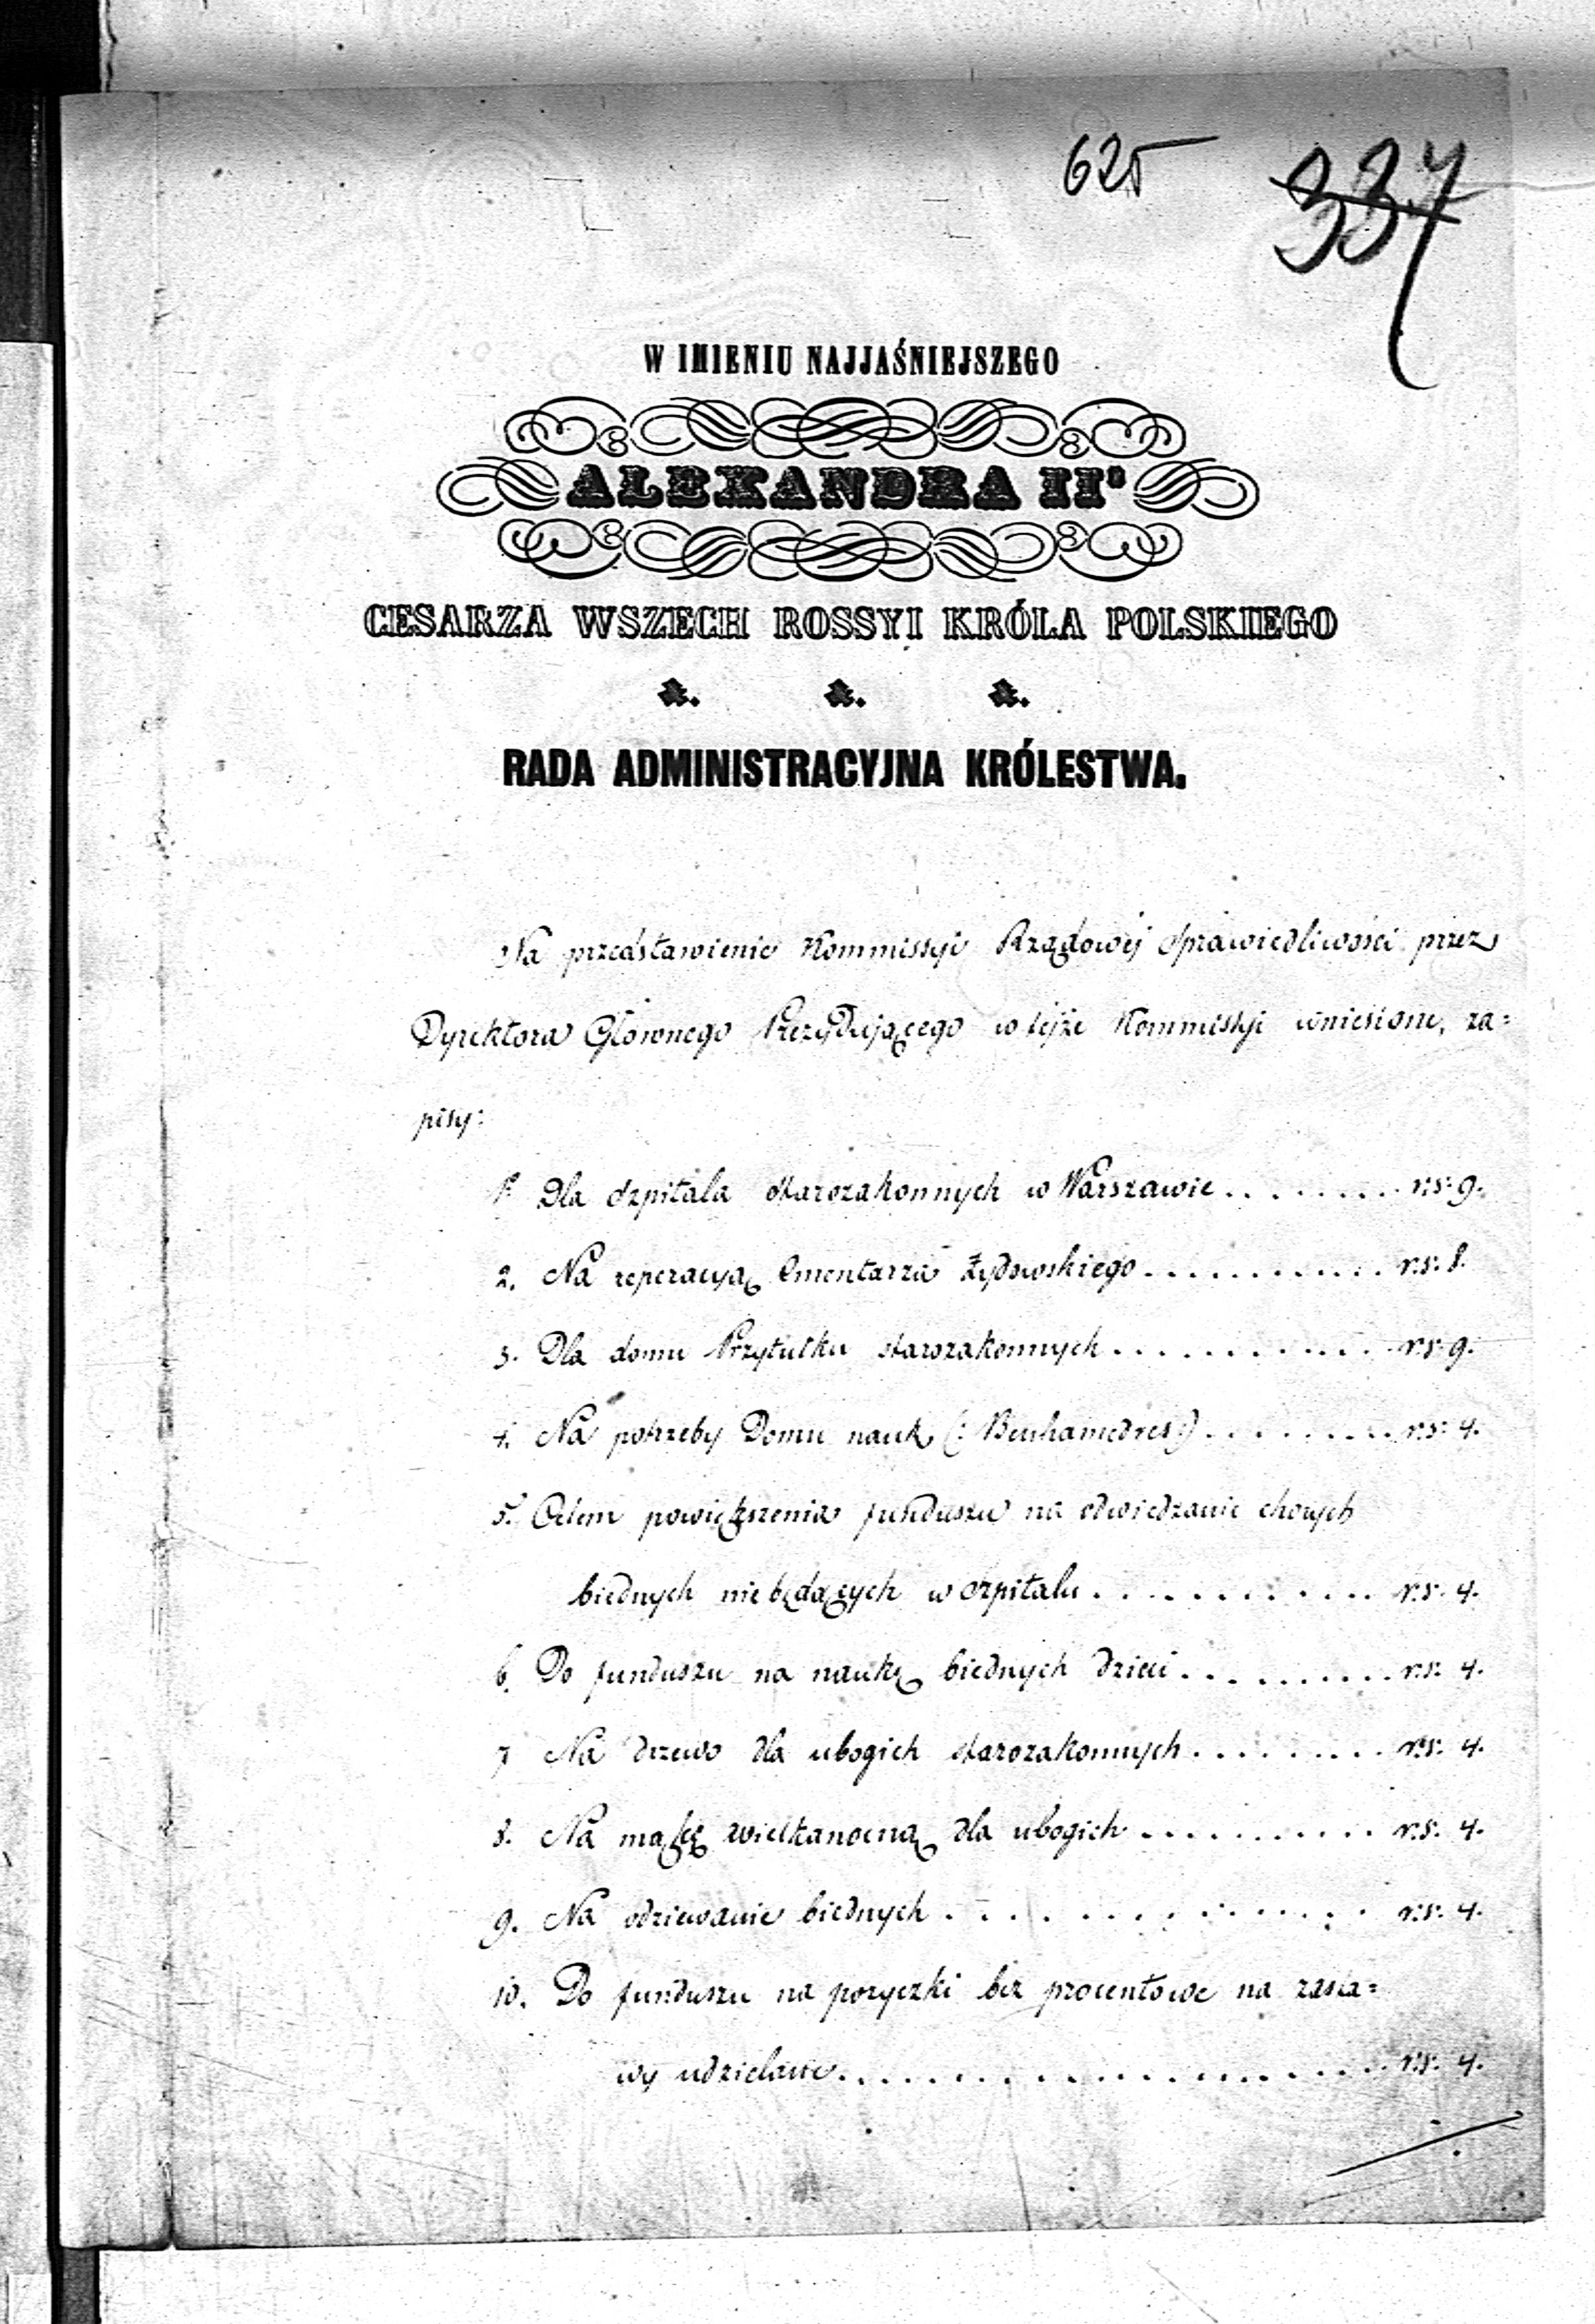 625
337
W IMIENIU NAJJAŚNIEJSZEGO
ALEXANDRA IIº
CESARZA WSZECH ROSSYI KRÓLA POLSKIEGO
&. &. &.
RADA ADMINISTRACYJNA KRÓLESTWA.
Na przedstawienie Kommissyi Rządowéj Sprawiedliwości przez
Dyrektora Głównego Prezydującego w tejże Kommissyi wniesione, za=
pisy:
1. Dla szpitala starozakonnych w Warszawie . . . . . . . . . r:s: 9.
2. Na reperacyą Cmentarza Żydowskiego . . . . . . . . . . . . r:s: 8.
3. Dla domu Przytułku starozakonnych . . . . . . . . . . . . r:s: 9.
4. Na potrzeby Domu nauk (: Beuhamedres:) . . . . . . . . . r:s: 4.
5. Celem powiększenia funduszu na odwiedzanie chorych
biednych nie będących w szpitalu . . . . . . . . . . . r:s: 4.
6. Do funduszu na naukę biednych dzieci . . . . . . . . . . r:s: 4.
7 Na drzewo dla ubogich starozakonnych . . . . . . . . . r:s: 4.
8. Na mąkę wielkanocną dla ubogich . . . . . . . . . . . r:s: 4.
9. Na odziewanie biednych . . . . . . . . . . . . . . . r:s: 4.
10. Do funduszu na pożyczki bez procentowe na zasta=
wy udzielane . . . . . . . . . . . . . . . . . . . . r:s: 4.